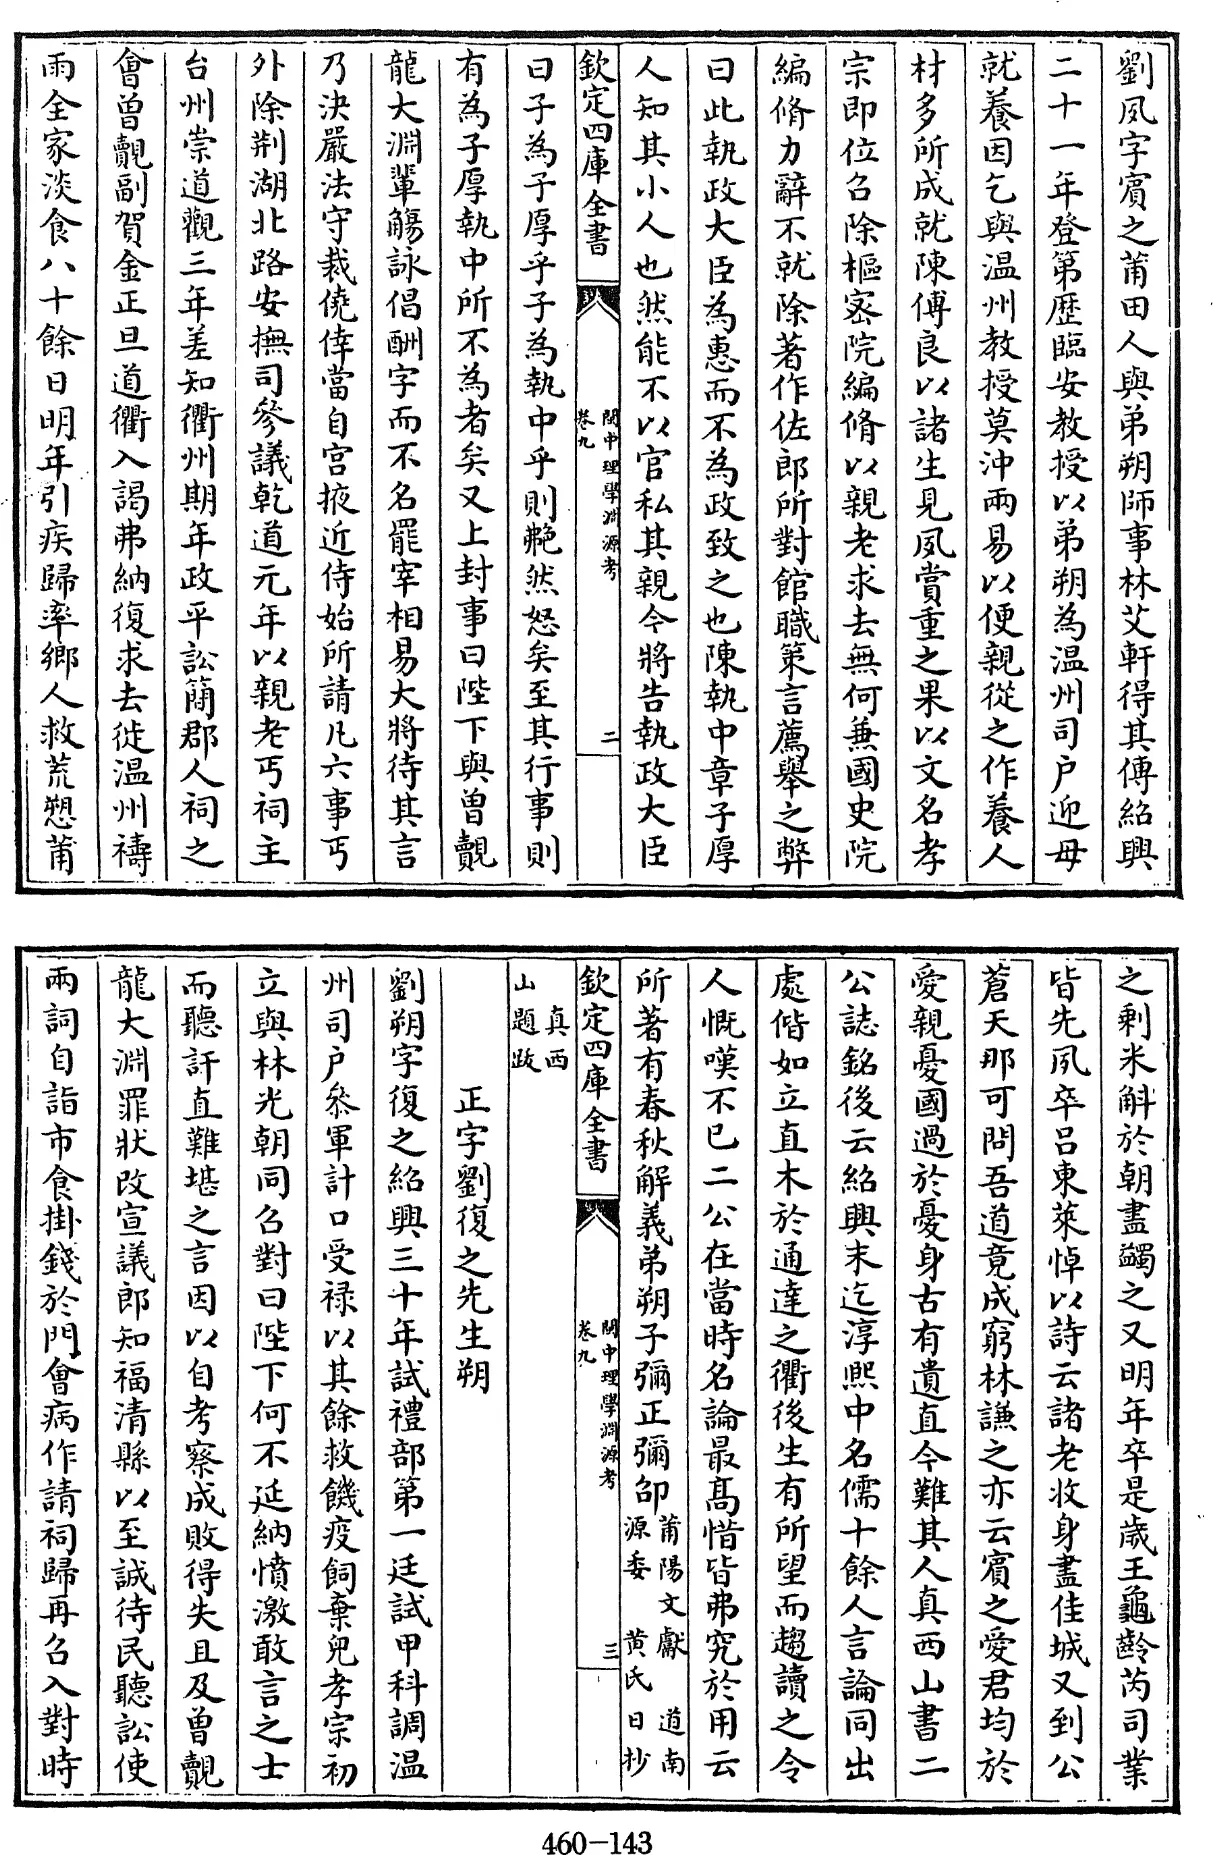 劉夙字賓之莆田人與弟朔師事林艾軒得其傳紹興
二十一年登第歴臨安教授以弟朔為温州司户迎母
就養因乞與温州教授莫沖兩易以便親從之作養人
材多所成就陳傅良以諸生見夙賞重之果以文名孝
宗即位召除樞宻院編脩以親老求去無何兼國史院
編脩力辭不就除著作佐郎所對館職策言薦舉之弊
曰此執政大臣為惠而不為政致之也陳執中章子厚
人知其小人也然能不以官私其親今將告執政大臣
欽定四庫全書
閩中理學淵源考
卷九
二
曰子為子厚乎子為執中乎則艴然怒矣至其行事則
有為子厚執中所不為者矣又上封事曰陛下與曾覿
龍大淵輩觴詠倡酬字而不名罷宰相易大將待其言
乃決嚴法守裁僥倖當自宫掖近侍始所請凡六事丐
外除荆湖北路安撫司參議乾道元年以親老丐祠主
台州崇道觀三年差知衢州期年政平訟簡郡人祠之
會曾覿副賀金正旦道衢入謁弗納復求去徙温州禱
雨全家淡食八十餘日明年引疾歸率鄉人救荒愬莆
之剩米斛於朝盡蠲之又明年卒是歳王龜齡芮司業
皆先夙卒吕東萊悼以詩云諸老收身盡佳城又到公
蒼天那可問吾道竟成窮林謙之亦云賓之愛君均於
愛親憂國過於憂身古有遺直今難其人真西山書二
公誌銘後云紹興末迄淳熙中名儒十餘人言論同出
處偕如立直木於通達之衢後生有所望而趨讀之令
人慨嘆不已二公在當時名論最髙惜皆弗究於用云
所著有春秋解義弟朔子彌正彌卲莆陽文獻 道南
源委 黄氏日抄
欽定四庫全書
閩中理學淵源考
卷九
三
真西
山題跋
正字劉復之先生朔
劉朔字復之紹興三十年試禮部第一廷試甲科調温
州司户叅軍計口受禄以其餘救饑疫飼棄兒孝宗初
立與林光朝同召對曰陛下何不延納憤激敢言之士
而聽訐直難堪之言因以自考察成敗得失且及曾覿
龍大淵罪狀改宣議郎知福清縣以至誠待民聽訟使
兩詞自詣市食掛錢於門會病作請祠歸再召入對時
460-143